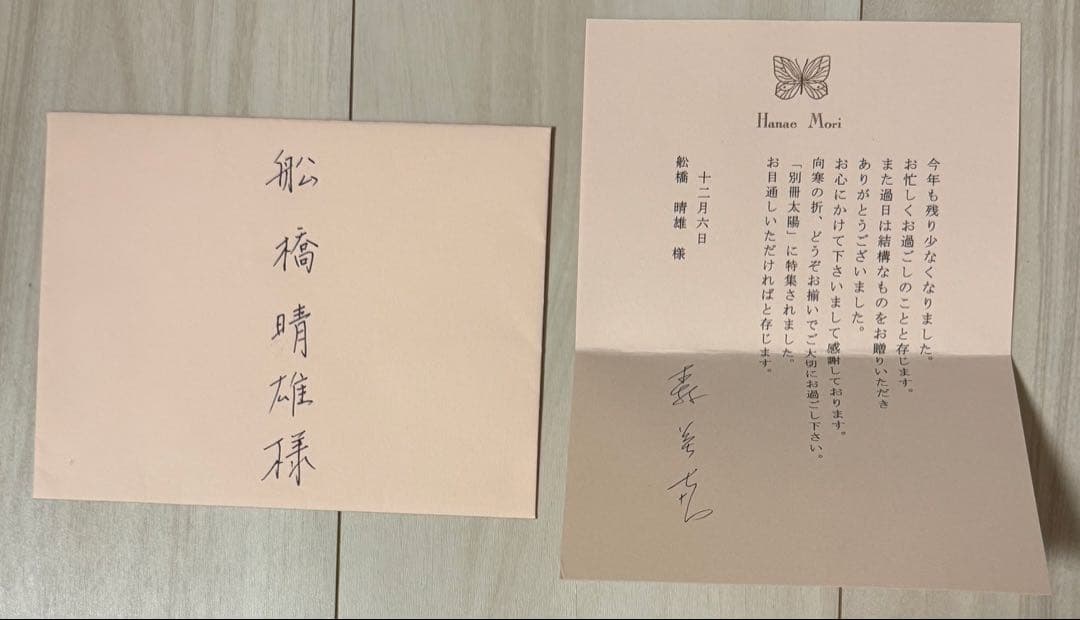 舩橋晴雄様
Hanae Mori
今年も残り少なくなりました。
お忙しくお過ごしのことと存じます。
また過日は結構なものをお贈りいただき
ありがとうございました。
お心にかけて下さいまして感謝しております。
向寒の折、どうぞお揃いでご大切にお過ごし下さい。
「別冊太陽」に特集されました。
お目通しいただければと存じます。
十二月六日
舩橋 晴雄 様
森英恵